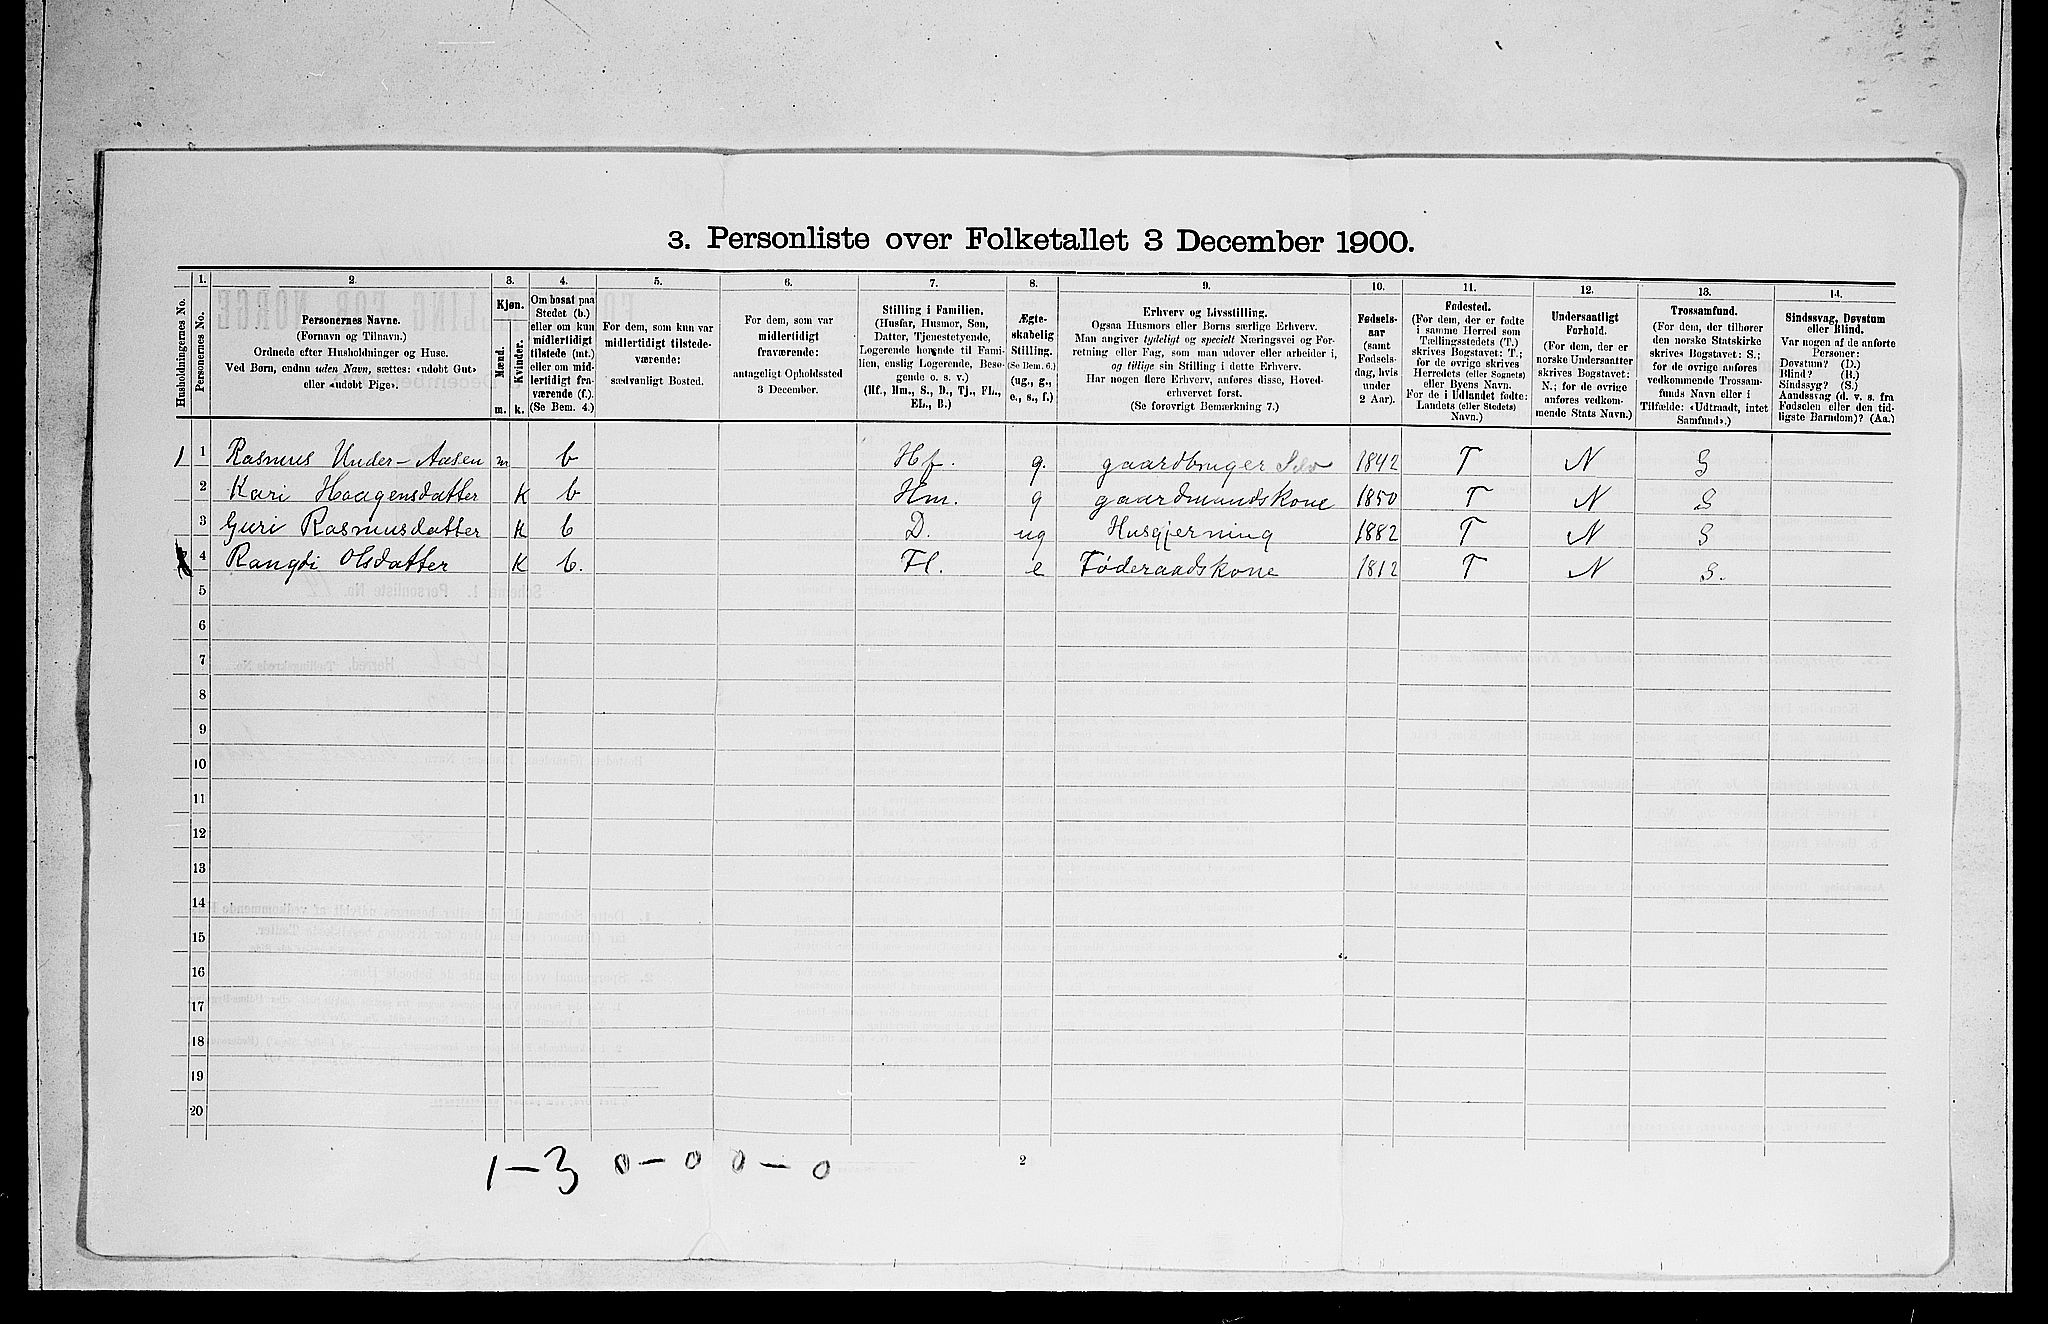 3. Personliste over Folketallet 3 December 1900.
1. 2. 3. 4. 5. 6. 7. 8. 9. 10. 11. 12. 13. 14.
Husholdningernes No.
Personernes No.
Personernes Navne.
(Fornavn og Tilnavn.)
Ordnede efter Husholdninger og Huse.
Ved Børn, endnu uden Navn, sættes: «udøbt Gut»
eller «udøbt Pige».
Kjøn.
Mænd.
Kvinder.
m. k.
Om bosat paa
Stedet (b.)
eller om kun
midlertidigt
tilstede (mt.)
eller om mid-
lertidigt fra-
værende (f.).
(Se Bem. 4.)
For dem, som kun var
midlertidigt tilstede-
værende:
sædvanligt Bosted.
For dem, som var
midlertidigt
fraværende:
antageligt Opholdssted
3 December.
Stilling i Familien.
(Husfar, Husmor, Søn,
Datter, Tjenestetyende,
Logerende hørende til Fami-
lien, enslig Logerende, Besø-
gende o. s. v.)
(Hf., Hm., S., D., Tj., FL.,
EL., B.)
Ægte-
skabelig
Stilling.
(Se Bem. 6.)
(ug., g.,
e., s., f.)
Erhverv og Livsstilling.
Ogsaa Husmors eller Børns særlige Erhverv.
Man angiver tydeligt og specielt Næringsvei og For-
retning eller Fag, som man udøver eller arbeider i,
og tillige sin Stilling i dette Erhverv.
Har nogen flere Erhverv, anføres disse, Hoved-
erhvervet først.
(Se forøvrigt Bemærkning 7.)
Fødsels-
aar
(samt
Fødsels-
dag, hvis
under
2 Aar).
Fødested.
(For dem, der er fødte
i samme Herred som
Tællingsstedets (T.)
skrives Bogstavet: T.;
for de øvrige skrives
Herredets (eller Sognets)
eller Byens Navn.
For de i Udlandet fødte:
Landets (eller Stedets)
Navn.)
Undersaatligt
Forhold.
(For dem, der er
norske Undersaatter
skrives Bogstavet:
N.; for de øvrige
anføres vedkom-
mende Stats Navn.)
Trossamfund.
(For dem, der tilhører
den norske Statskirke
skrives Bogstavet: S.;
for de øvrige anføres
vedkommende Trossam-
funds Navn eller i
Tilfælde: «Udtraadt, intet
Samfund».)
Sindssvag, Døvstum
eller Blind.
Var nogen af de anførte
Personer:
Døvstum? (D.)
Blind? (B.)
Sindssyg? (S.)
Aandssvag (d. v. s. fra
Fødselen eller den tid-
ligste Barndom)? (Aa.)
1 1 Rasmus Under-Aasen m b Hf. g. gaardbruger Selv 1842 T N S
2 Kari Haagensdatter K b Hm. g gaardmandskone 1850 T N S
3 Guri Rasmusdatter K b D. ug Husgjerning 1882 T N S
4 Rangdi Olsdatter K b. Fl. e Føderaadskone 1812 T N S.
5
6
7
8
9
10
11
12
13
14
15
16
17
18
19
20
1-3 0-0 0-0
2